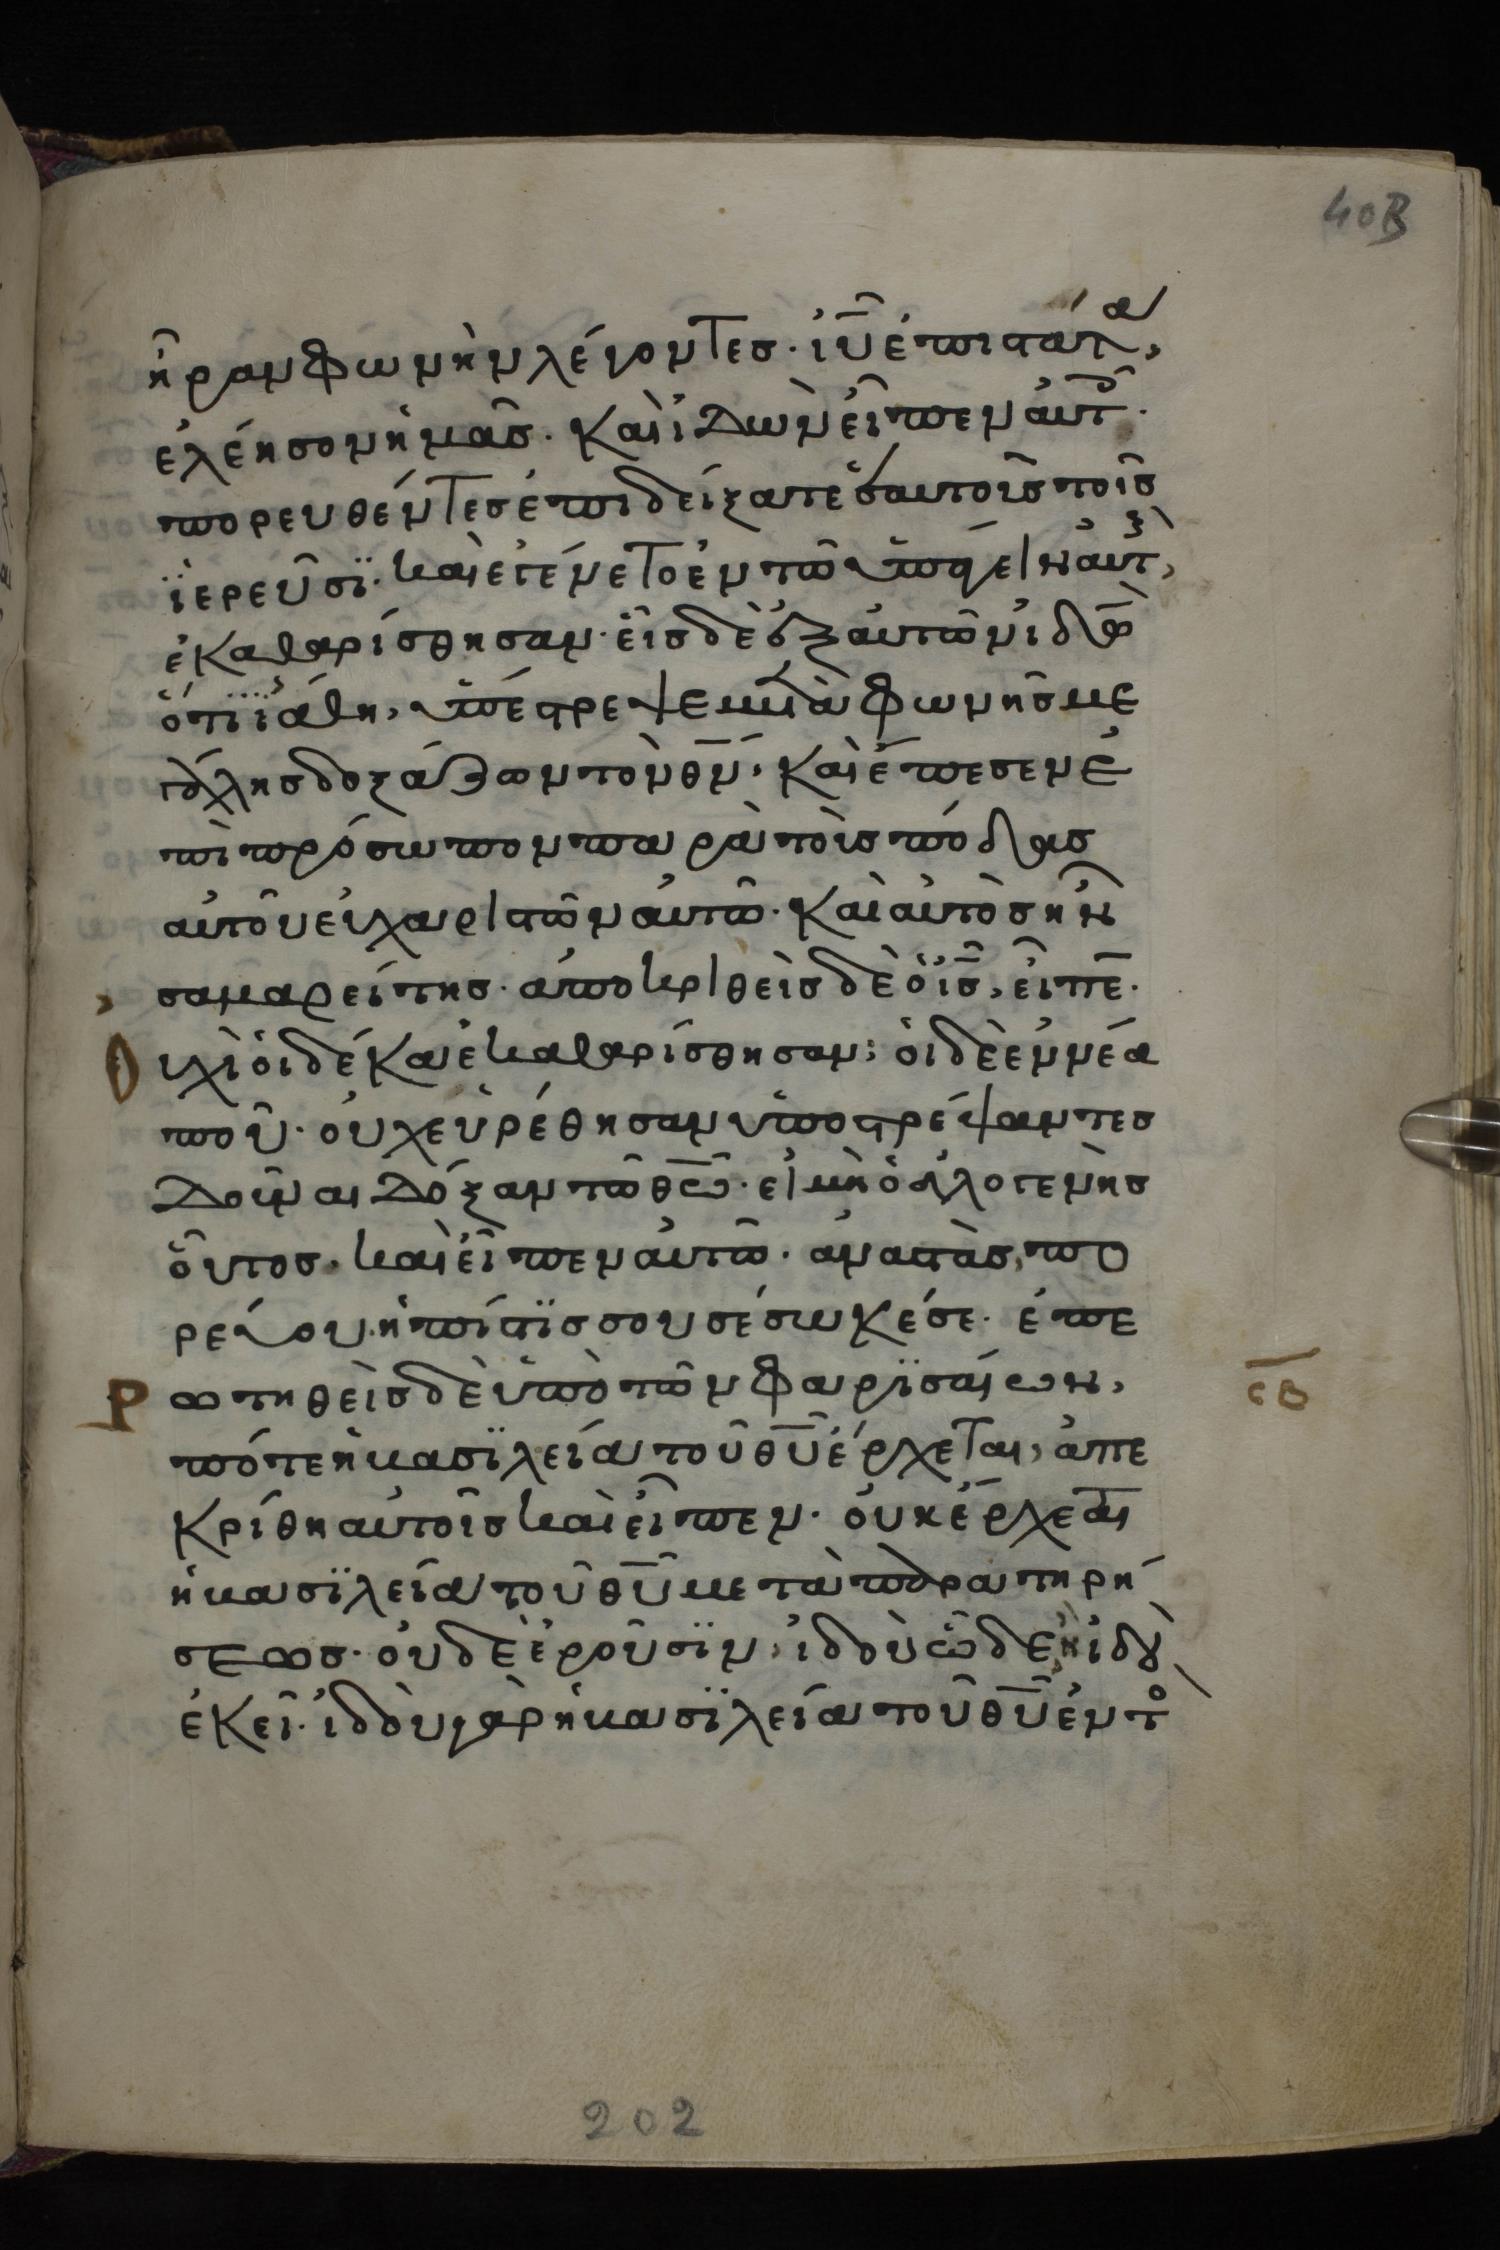 40B
ἦραν φωνὴν λέγοντες· ἰῦ ἐπιστάτα,
ἐλέησον ἡμᾶς. Καὶ ἰδὼν εἶπεν αὐτοῖς·
πορευθέντες ἐπιδείξατε ἑαυτοὺς τοῖς
ϊερεῦσϊ. καὶ ἐγένετο ἐν τῶ ὑπάγειν αὐτοὺς,
ἐκαθαρίσθησαν. εἷς δὲ ἐξ αὐτῶν ἰδὼν
ὅτι ϊάθη, ὑπέστρεψε μετὰ φωνῆς με
γάλης δοξάζων τὸν θν̄. Καὶ ἔπεσεν ἐ
πὶ πρόσωπον παρὰ τοὺς πόδας
αὐτοῦ εὐχαριστῶν αὐτῶ. Καὶ αὐτὸς ἦν
σαμαρείτης. ἀποκριθεὶς δὲ ὁ ἰς̄, εἶπε.
Ουχὶ οἱ δέκα ἐκαθαρίσθησαν; οἱ δὲ ἐννέα
ποῦ. οὐχ εὑρέθησαν ὑποστρέψαντες
δοῦναι δόξαν τῶ θω̄. εἰ μὴ ὁ ἀλλογενὴς
οὗτος. καὶ εἶπεν αὐτῶ. ἀναστὰς, πο
ρεύου. ἡ πίστϊς σου σέσωκέ σε. ἐπε
Ρωτηθεὶς δὲ ὑπὸ τῶν φαρϊσαίων,
πότε ἡ βασϊλεία τοῦ θῦ ἔρχεται, ἀπε
κρίθη αὐτοῖς καὶ εἶπεν. οὐκ ἔρχεται
ἡ βασϊλεία τοῦ θῦ μετὰ παρατηρή
σεως. οὐδὲ ἐροῦσϊν, ἰδοὺ ὧδε, ἢ ἰδοὺ
ἐκεῖ. ἰδοὺ γὰρ ἡ βασϊλεία τοῦ θῦ ἐντὸ
202